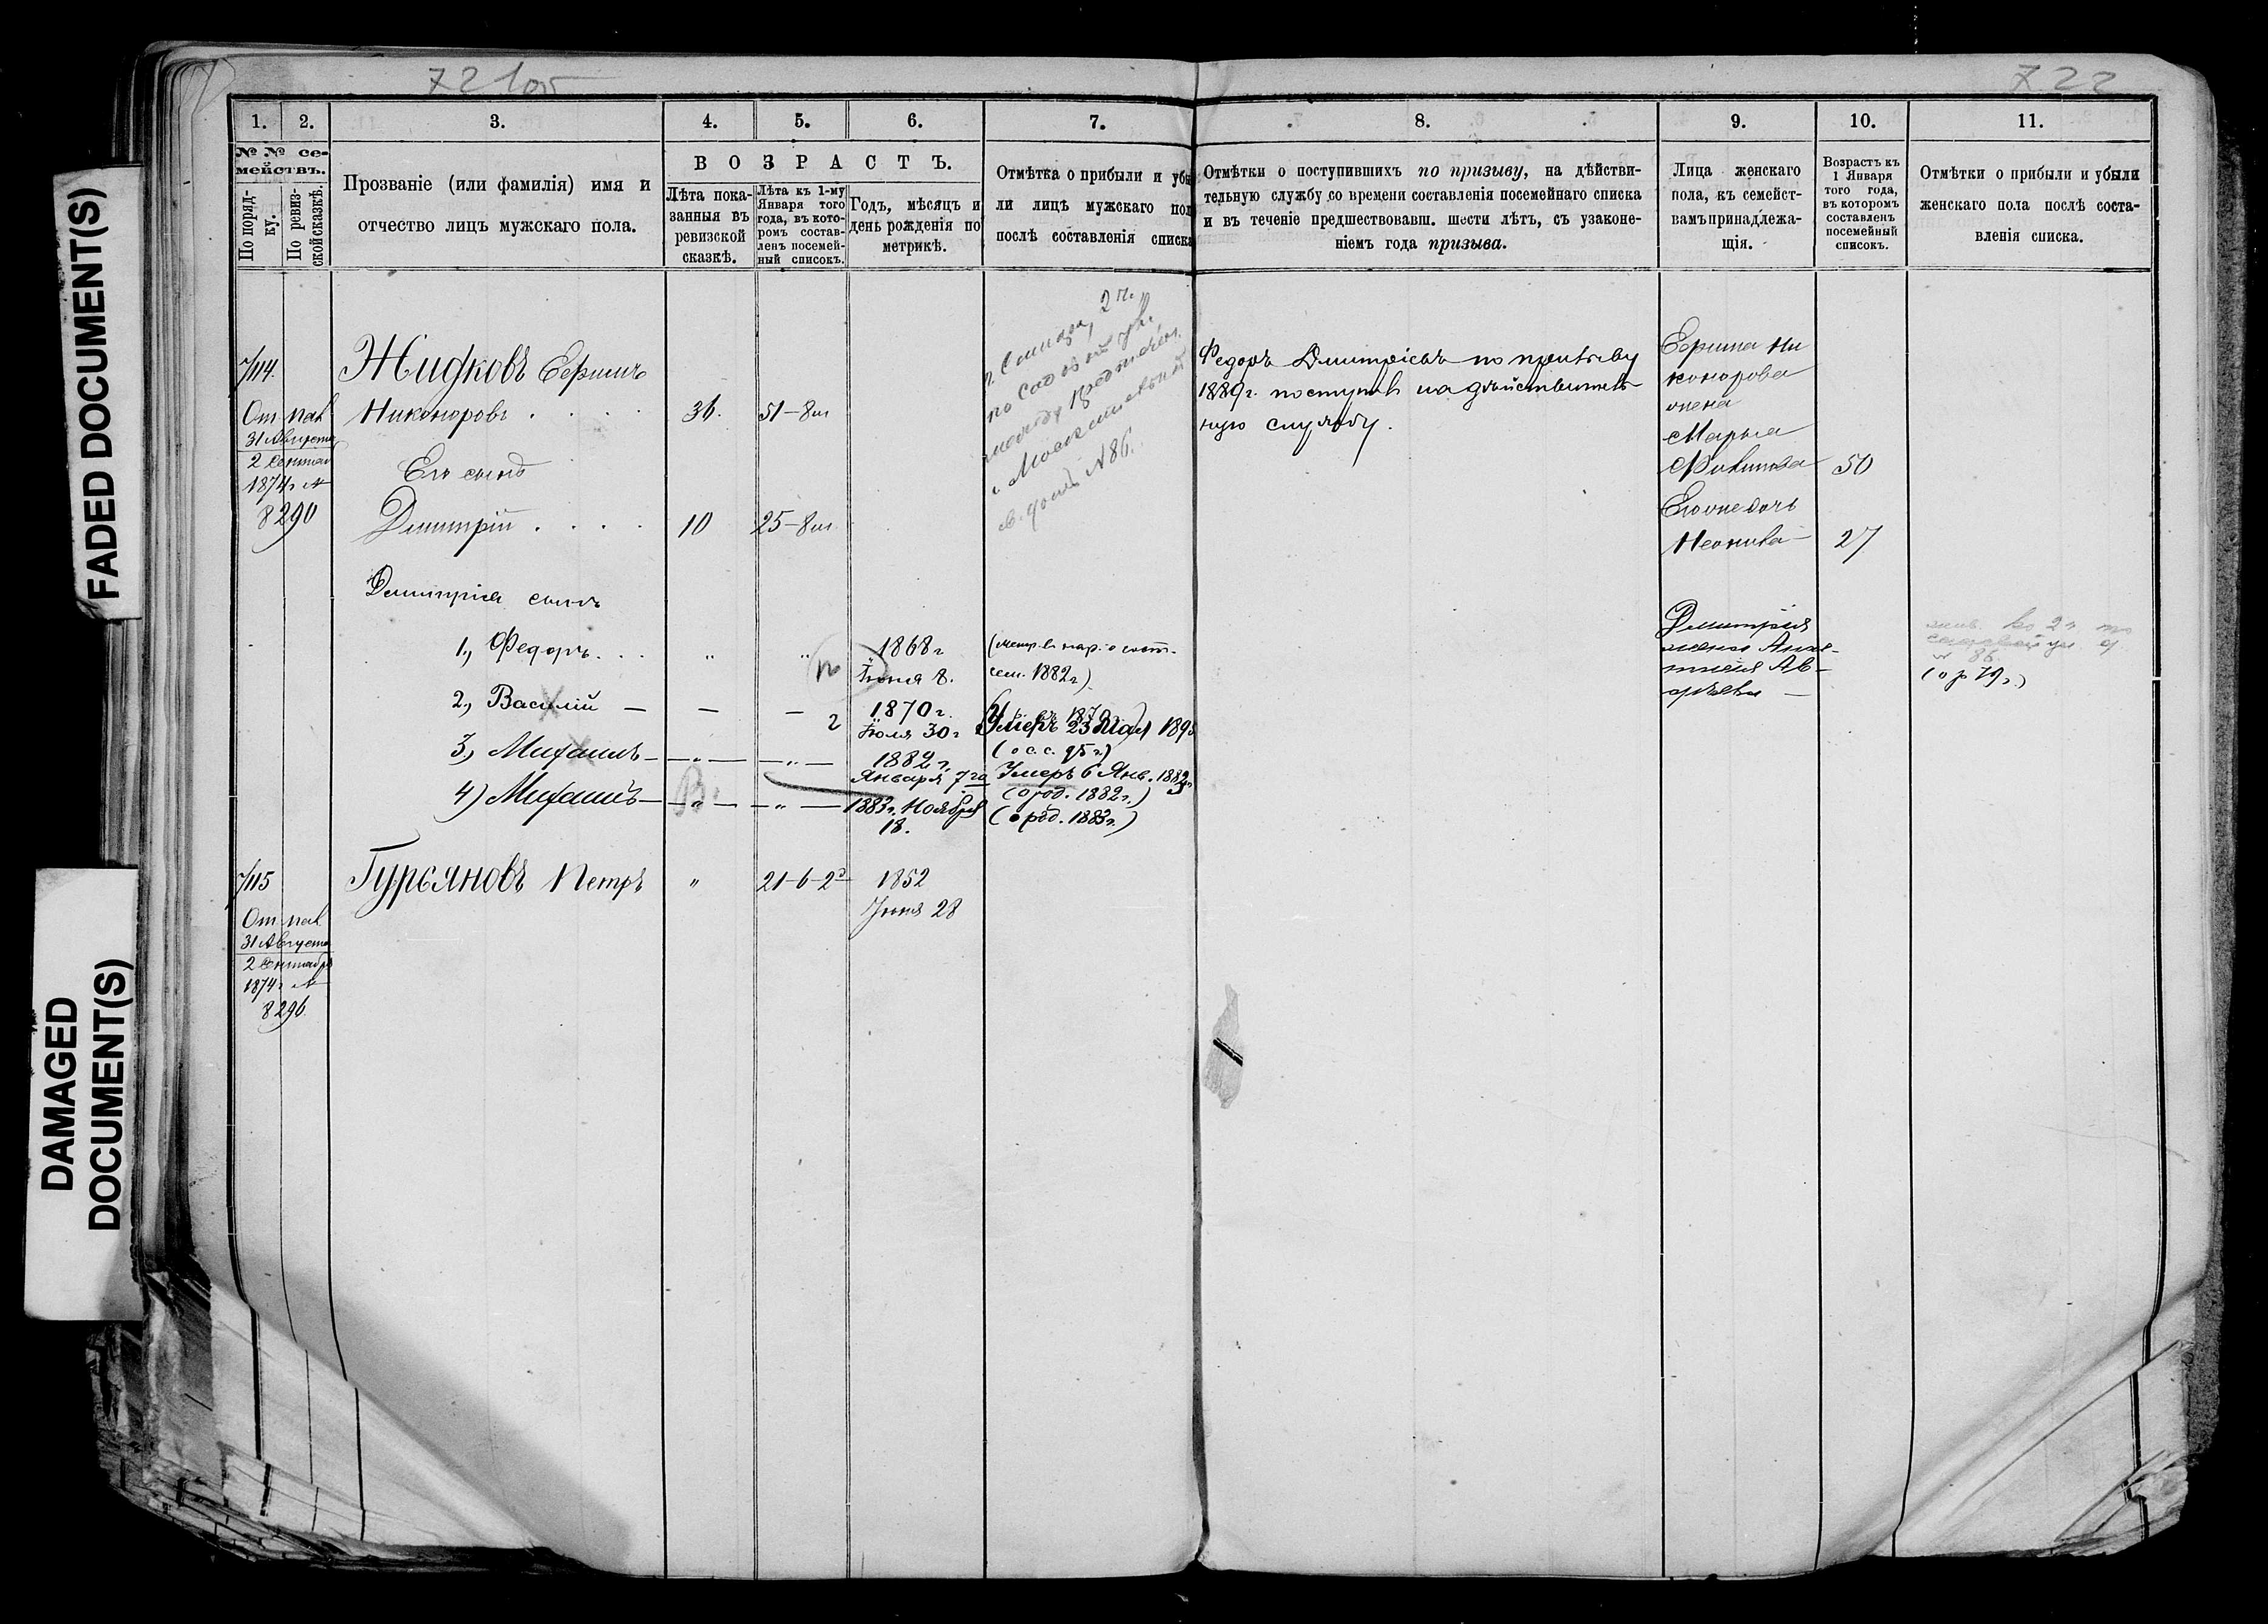 721об
722
FADED DOCUMENT(S)
DAMAGED
DOCUMENT(S)
1.
2.
3.
4.
5.
6.
7.
8.
9.
10.
11.
№ № се-
мействъ.
По поряд-
ку.
По ревиз-
ской сказкѣ.
Прозваніе (или фамилія) имя и
отчество лицъ мужскаго пола.
ВОЗРАСТЪ.
Лѣта пока-
занныя въ
ревизской
сказкѣ.
Лѣта къ 1-му
Января того
года, въ кото-
ромъ состав-
ленъ посемей-
ный списокъ.
Годъ, мѣсяцъ и
день рожденія по
метрикѣ.
Отмѣтка о прибыли и убы
ли лицъ мужскаго пол
послѣ составленія списка
Отмѣтки о поступившихъ по призыву, на дѣйстви-
тельную службу со времени составленія посемейнаго списка
и въ теченіе предшествовавш. шести лѣтъ, съ узаконе-
ніемъ года призыва.
Лица женскаго
пола, къ семейст-
вамъ принадлежа-
щія.
Возрастъ къ
1 Января
того года,
въ которомъ
составленъ
посемейный
списокъ.
Отмѣтки о прибыли и убыли
женскаго пола послѣ соста-
вленія списка.
7114.
Жидковъ Ефимъ
Никоноровъ . . . .
36.
51-8м
От. пав
31 Августа
2 Сентяб
1874г №
8290
Его сынъ
Дмитрій . . . .
10
25-8м
2 ч.
по Садовой ул.
между
д. № 86.
Федоръ Дмитріевъ по призыву
1889г. поступилъ на дѣйствитель-
ную службу.
Ефима Ни
конорова
жена
Марья
50
Его же дочь
27
Дмитрія сынъ
1, Федоръ. . .
"
"
1868г
Іюня 8.
сем. 1882г)
2, Василій —
—
—
2
1870г.
Іюля 30г
Умеръ 23 Мая 189
(о с. с. 95г)
3, Михаилъ —
— " —
— " —
1882г.
Января 7го
Умеръ 6 Янв. 1883г
(о род. 1882г.)
4) Михаилъ —
— " —
— " —
1883г. Ноября
18.
(о род. 1883г.)
Дмитрія
жена
во 2 ч по
86
(о р 79г.)
7115
Гурьяновъ Петръ
"
21-6-2д
1852
Іюня 28
От. пав
31 Августа
2 Сентября
1874г №
8296.